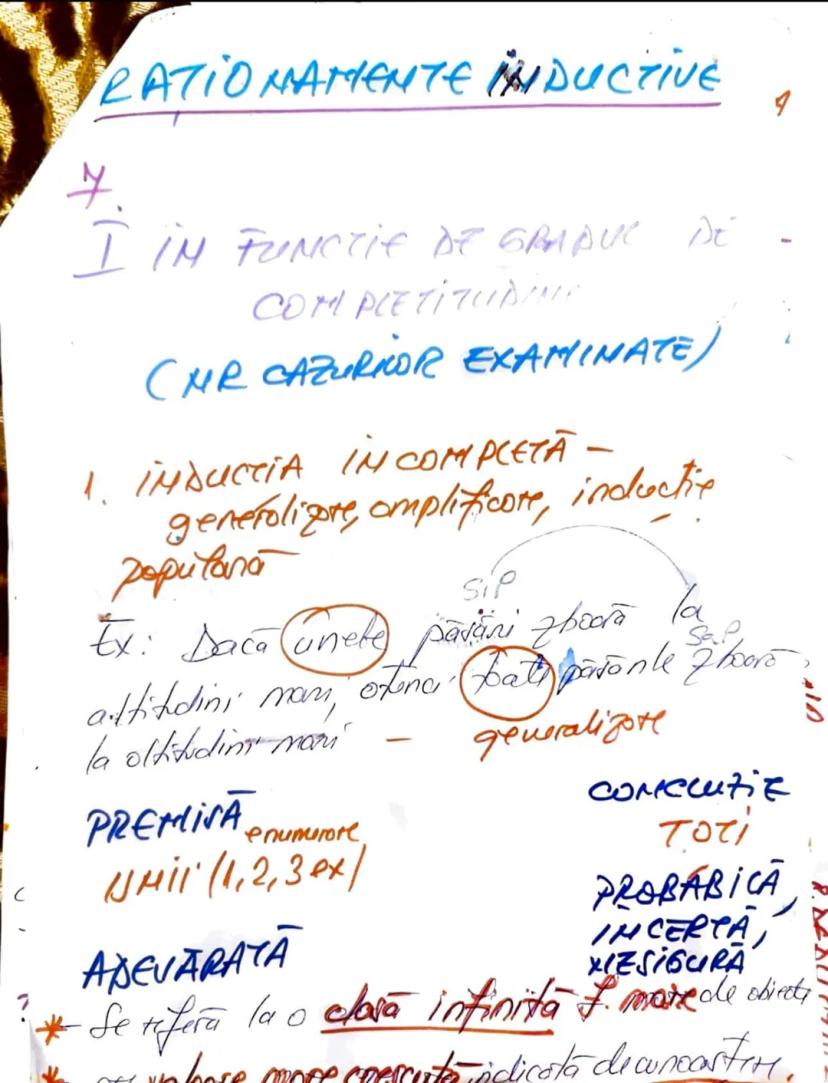 RATIONAMENTE INDUCTIVE
7
I IN FUNCTIE DE GRADUL DE
COMPLETITUDINE
(NR CAZURILOR EXAMINATE)
1. INDUCTIA INCOMPLETĂ –
generalizare, amplificare, inducție
populară
SiP
Ex: Dacă unele păsări zboară la
SaP
altitudini mari, atunci toate păsările zboară
la altitudini mari – generalizare
PREMISĂ enumerare CONCLUZIE
UNII (1,2,3 ex) TOTI
PROBABILĂ,
INCERTĂ,
ADEVĂRATĂ NESIGURĂ
* – Se referă la o clasă infinită f. mare de obiecte
* valoare mare ridicată de cunoaștere.